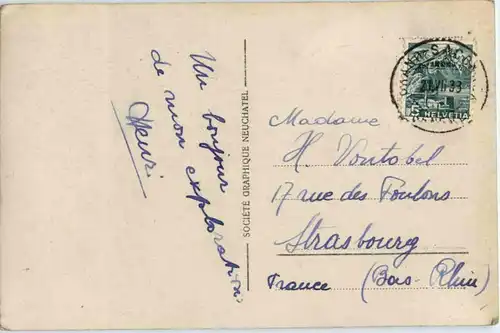 Un bonjour
de mon exploration
Henri
SOCIÉTÉ GRAPHIQUE NEUCHATEL
HELVETIA
Madame
H. Vontobel
17 rue des Foulons
Strasbourg
France (Bas-Rhin)